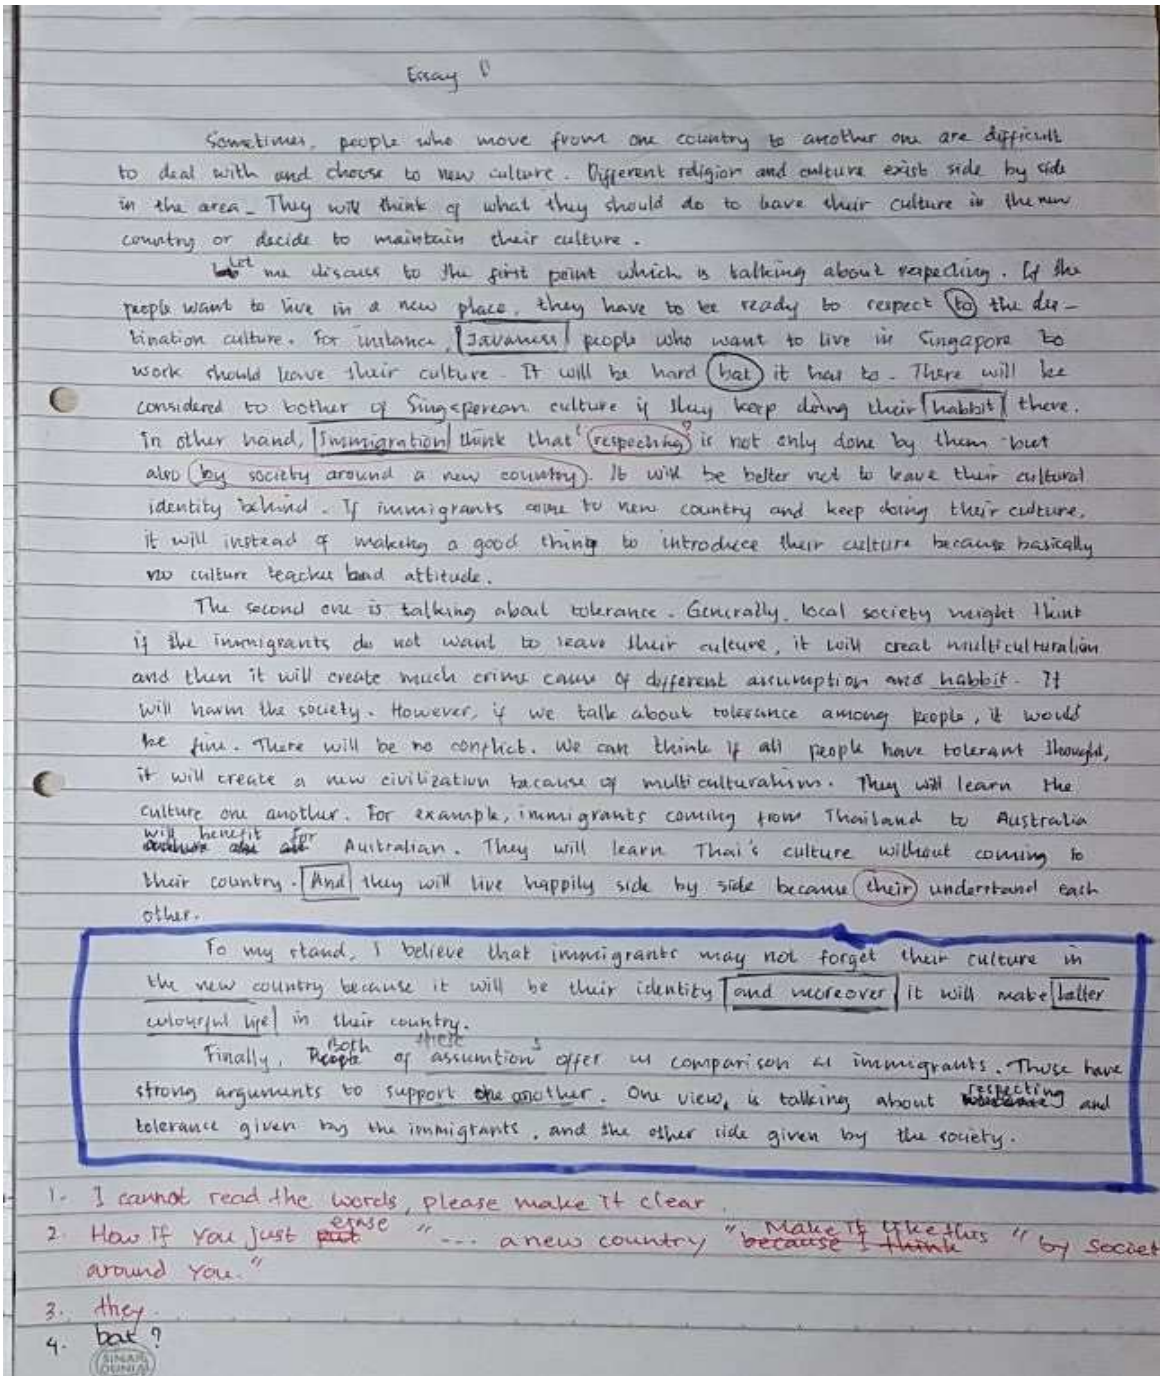 Essay
Sometimes, people who move from one country to another one are difficult
to deal with and choose to new culture. Different religion and culture exist side by side
in the area. They will think of what they should do to leave their culture in the new
country or decide to maintain their culture.
Let me discuss to the first point which is talking about respecting. If the
people want to live in a new place, they have to be ready to respect to the des-
tination culture. For instance, Javaness people who want to live in Singapore to
work should leave their culture. It will be hard bat it has to. There will be
considered to bother of Singaperean culture if they keep doing their habbit there.
In other hand, Immigration think that "respecting" is not only done by them but
also by society around a new country. It will be better not to leave their cultural
identity behind. If immigrants come to new country and keep doing their culture,
it will instead of making a good thing to introduce their culture because basically
no culture teaches bad attitude.
The second one is talking about tolerance. Generally, local society might think
if the immigrants do not want to leave their culture, it will creat multiculturalism
and then it will create much crime cause of different assumption and habbit. It
will harm the society. However, if we talk about tolerance among people, it would
be fine. There will be no conflict. We can think if all people have tolerant thought,
it will create a new civilization because of multiculturalism. They will learn the
culture one another. For example, immigrants coming from Thailand to Australia
will benefit for Australian. They will learn Thai's culture without coming to
their country. And they will live happily side by side because their understand each
other.
To my stand, I believe that immigrants may not forget their culture in
the new country because it will be their identity and moreover it will make latter
colourful life in their country.
Finally, Both of these assumtion's offer us comparison as immigrants. Those have
strong arguments to support one another. One view, is talking about respecting and
tolerance given by the immigrants, and the other side given by the society.
1. I cannot read the words, please make it clear.
2. How if you just put erase "... a new country" because I think Make it like this "by Societ
around you."
3. they.
4. bat?
SINAR DUNIA